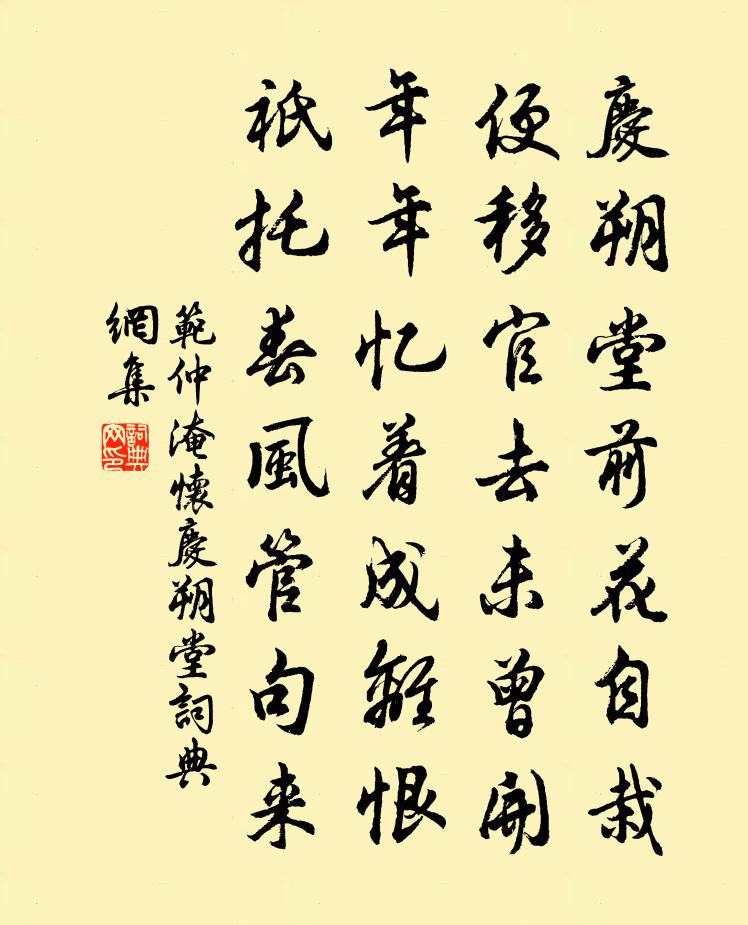 慶朔堂前花自栽
便移官去未曾開
年年忆着成離恨
祇托春風管句来
範仲淹懷慶朔堂詞典
網集
詞典
网印